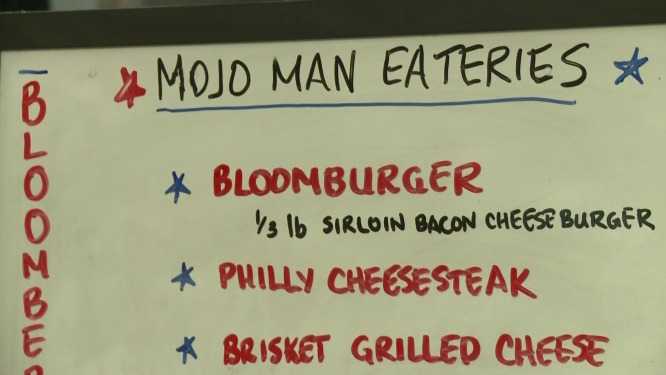 MOJO MAN EATERIES
BLOOMBURGER
1/3 lb SIRLOIN BACON CHEESEBURGER
PHILLY CHEESESTEAK
BRISKET GRILLED CHEESE
BLOOMBE